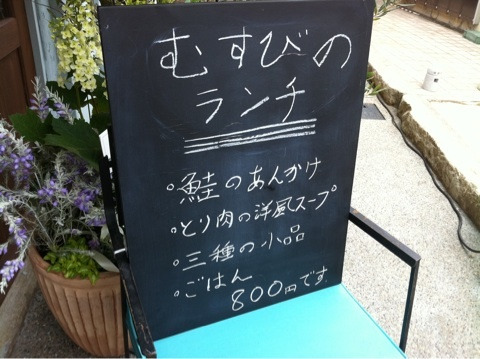 むすびの
ランチ
・鮭のあんかけ
・とり肉の洋風スープ
・三種の小品
・ごはん
800円です